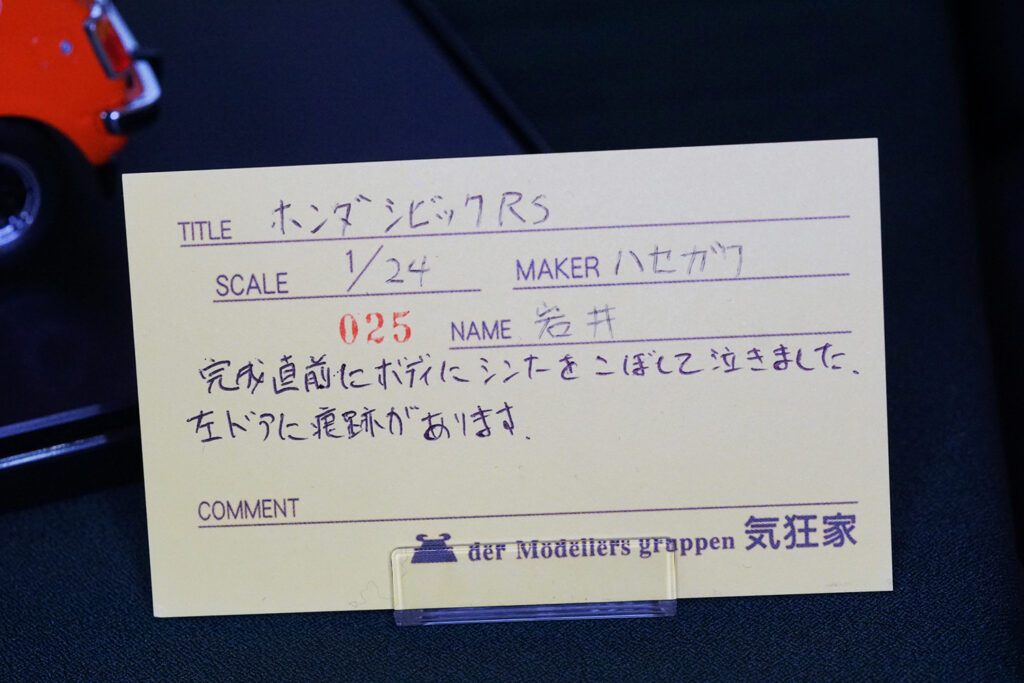 TITLE ホンダシビックRS
SCALE 1/24 MAKER ハセガワ
025 NAME 岩井
完成直前にボディにシンナーをこぼして泣きました、
左ドアに痕跡があります.
COMMENT
der Modellers gruppen 気狂家